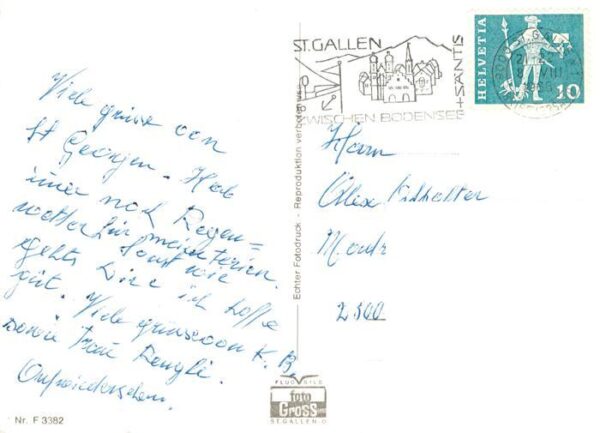 Viele grüsse von
St Georgen. Hab
imer noch Regen=
wetter für meine Ferien.
Sonst
gehts wie ich hoffe
gut. Viele grüsse von K. B.
sowie Frau Rengli.
Aufwiedersehen.
Nr. F 3382
Echter Fotodruck - Reproduktion verboten
ST. GALLEN
ZWISCHEN BODENSEE + SÄNTIS
HELVETIA
10
Herrn
Alex
2500
FLUGBILD
foto
Gross
ST. GALLEN